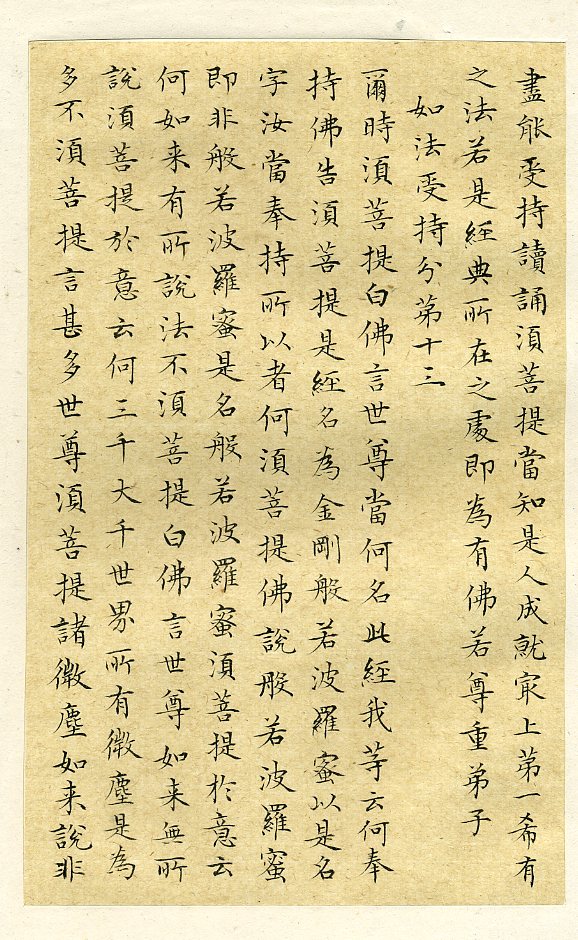 盡能受持讀誦須菩提當知是人成就冣上苐一希有
之法若是經典所在之處即為有佛若尊重弟子
如法受持分苐十三
爾時須菩提白佛言世尊當何名此經我等云何奉
持佛告須菩提是經名為金剛般若波羅蜜以是名
字汝當奉持所以者何須菩提佛說般若波羅蜜
即非般若波羅蜜是名般若波羅蜜須菩提於意云
何如来有所說法不須菩提白佛言世尊如来無所
說須菩提於意云何三千大千世界所有微塵是為
多不須菩提言甚多世尊須菩提諸微塵如来說非